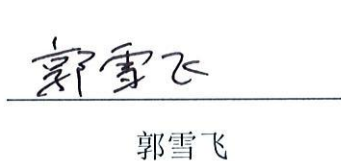 郭雪飞
郭雪飞